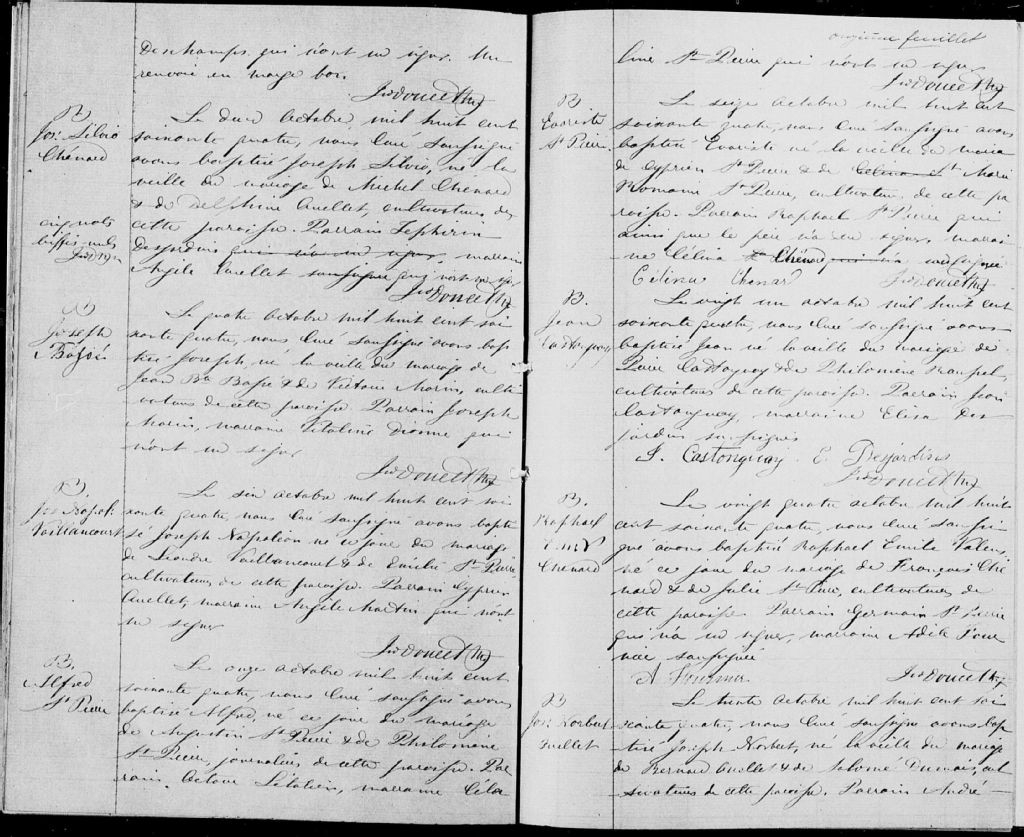 Deschamps qui n'ont su signer. Un
renvoie en marge bon.
Jos Doucet Ptre
B
Jos. Silvio
Chénard
Le deux octobre mil huit cent
soixante quatre, nous Curé soussigné
avons baptisé Joseph Silvio, né la
veille du mariage de Michel Chenard
& de Delphine Ouellet, cultivateurs de
cette paroisse. Parrain Zepherin
Desjardins qui n'a su signer, marraine
Angèle Ouellet soussignée qui n'ont su signer
cinq mots
biffés nuls
Jos Doucet Ptre
B
Joseph
Bossé
Le quatre octobre mil huit cent soi
xante quatre, nous Curé soussigné avons bap
tisé Joseph, né la veille du mariage de
Jean Bte Bossé & de Victoire Morin, culti
vateurs de cette paroisse. Parrain Joseph
Morin, marraine Vitaline Dionne qui
n'ont su signer
Jos Doucet Ptre
B.
Jos Napol.
Vaillancourt
Le six octobre mil huit cent soi
xante quatre, nous Curé soussigné avons bapti
sé Joseph Napoléon né ce jour du mariage
de Léandre Vaillancourt & de Emilie St Pierre,
cultivateurs, de cette paroisse. Parrain Cyprien
Ouellet, marraine Angèle Martin qui n'ont
su signer
Jos Doucet Ptre
B.
Alfred
St Pierre
Le onze octobre mil huit cent
soixante quatre, nous Curé soussigné avons
baptisé Alfred, né ce jour du mariage
de Augustin St Pierre & de Philomène
St Pierre, journaliers de cette paroisse. Par
rain Octave Létalien, marraine Céla
onzième feuillet
line St Pierre qui n'ont su signer
Jos Doucet Ptre
B
Evariste
St Pierre
Le seize octobre mil huit cent
soixante quatre, nous Curé soussigné avons
baptisé Evariste né la veille du maria
de Cyprien St Pierre & de Célina St Marie
Romaine St Pierre, cultivateurs, de cette pa
roisse. Parrain Raphael St Pierre qui
ainsi que le père n'a su signer, marrai
ne Célina Chénard soussignée
Célina Chenard
Jos Doucet Ptre
B.
Jean
Castonguay
Le vingt un octobre mil huit cent
soixante quatre, nous Curé soussigné avons
baptisé Jean né la veille du mariage de
Pierre Castonguay & de Philomène Raupel,
cultivateurs de cette paroisse. Parrain Jean
Castonguay, marraine Elisa Des
jardins soussignés
J. Castonguay. E. Desjardins
Jos Doucet Ptre
B.
Raphael
Em. V
Chénard
Le vingt quatre octobre mil huit
cent soixante quatre, nous Curé soussi
gné avons baptisé Raphael Emile Valens,
né ce jour du mariage de François Ché
nard & de Julie St Pierre, cultivateurs, de
cette paroisse. Parrain Germain St Pierre
qui n'a su signer, marraine Adèle Four
nier soussignée
A Fournier
Jos Doucet Ptre
B
Jos. Norbert
Ouellet
Le trente octobre mil huit cent soi
xante quatre, nous Curé soussigné avons bap
tisé Joseph Norbert, né la veille du mariage
de Bernard Ouellet & de Salomé Dumais, cul
tivateurs de cette paroisse. Parrain André